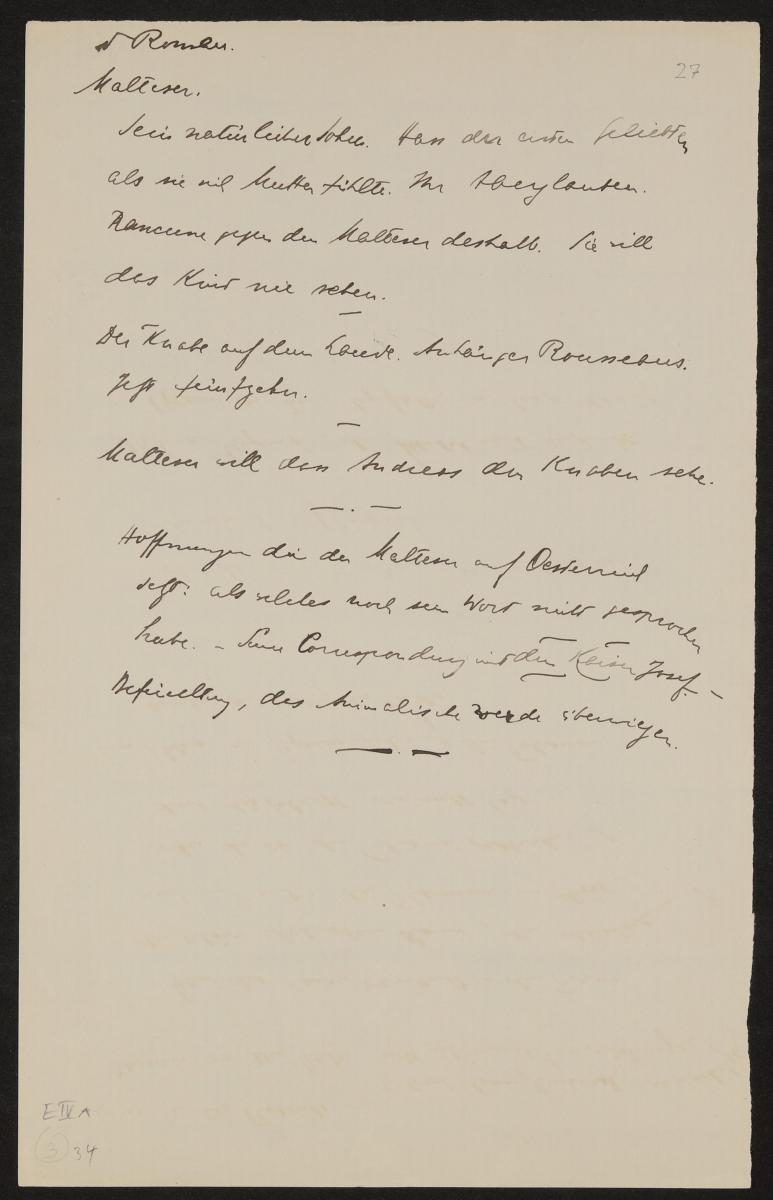 d Roman.
27
Malteser.
Sein natürlicher Sohn. Hass der ersten Geliebten
als sie sich Mutter fühlte. Ihr Aberglauben.
Rancune gegen den Malteser deshalb. Sie will
das Kind nie sehen.
—
Der Knabe auf dem Lande. Anhänger Rousseaus.
Jetzt
—
Malteser will dass Andreas den Knaben sehe.
— . —
Hoffnungen die der Malteser auf Oesterreich
setzt: als welches noch sein Wort nicht gesprochen
habe. – Seine Correspondenz mit dem Kaiser Josef. –
, das Animalische werde überwiegen.
— . —
E IV A
3 34